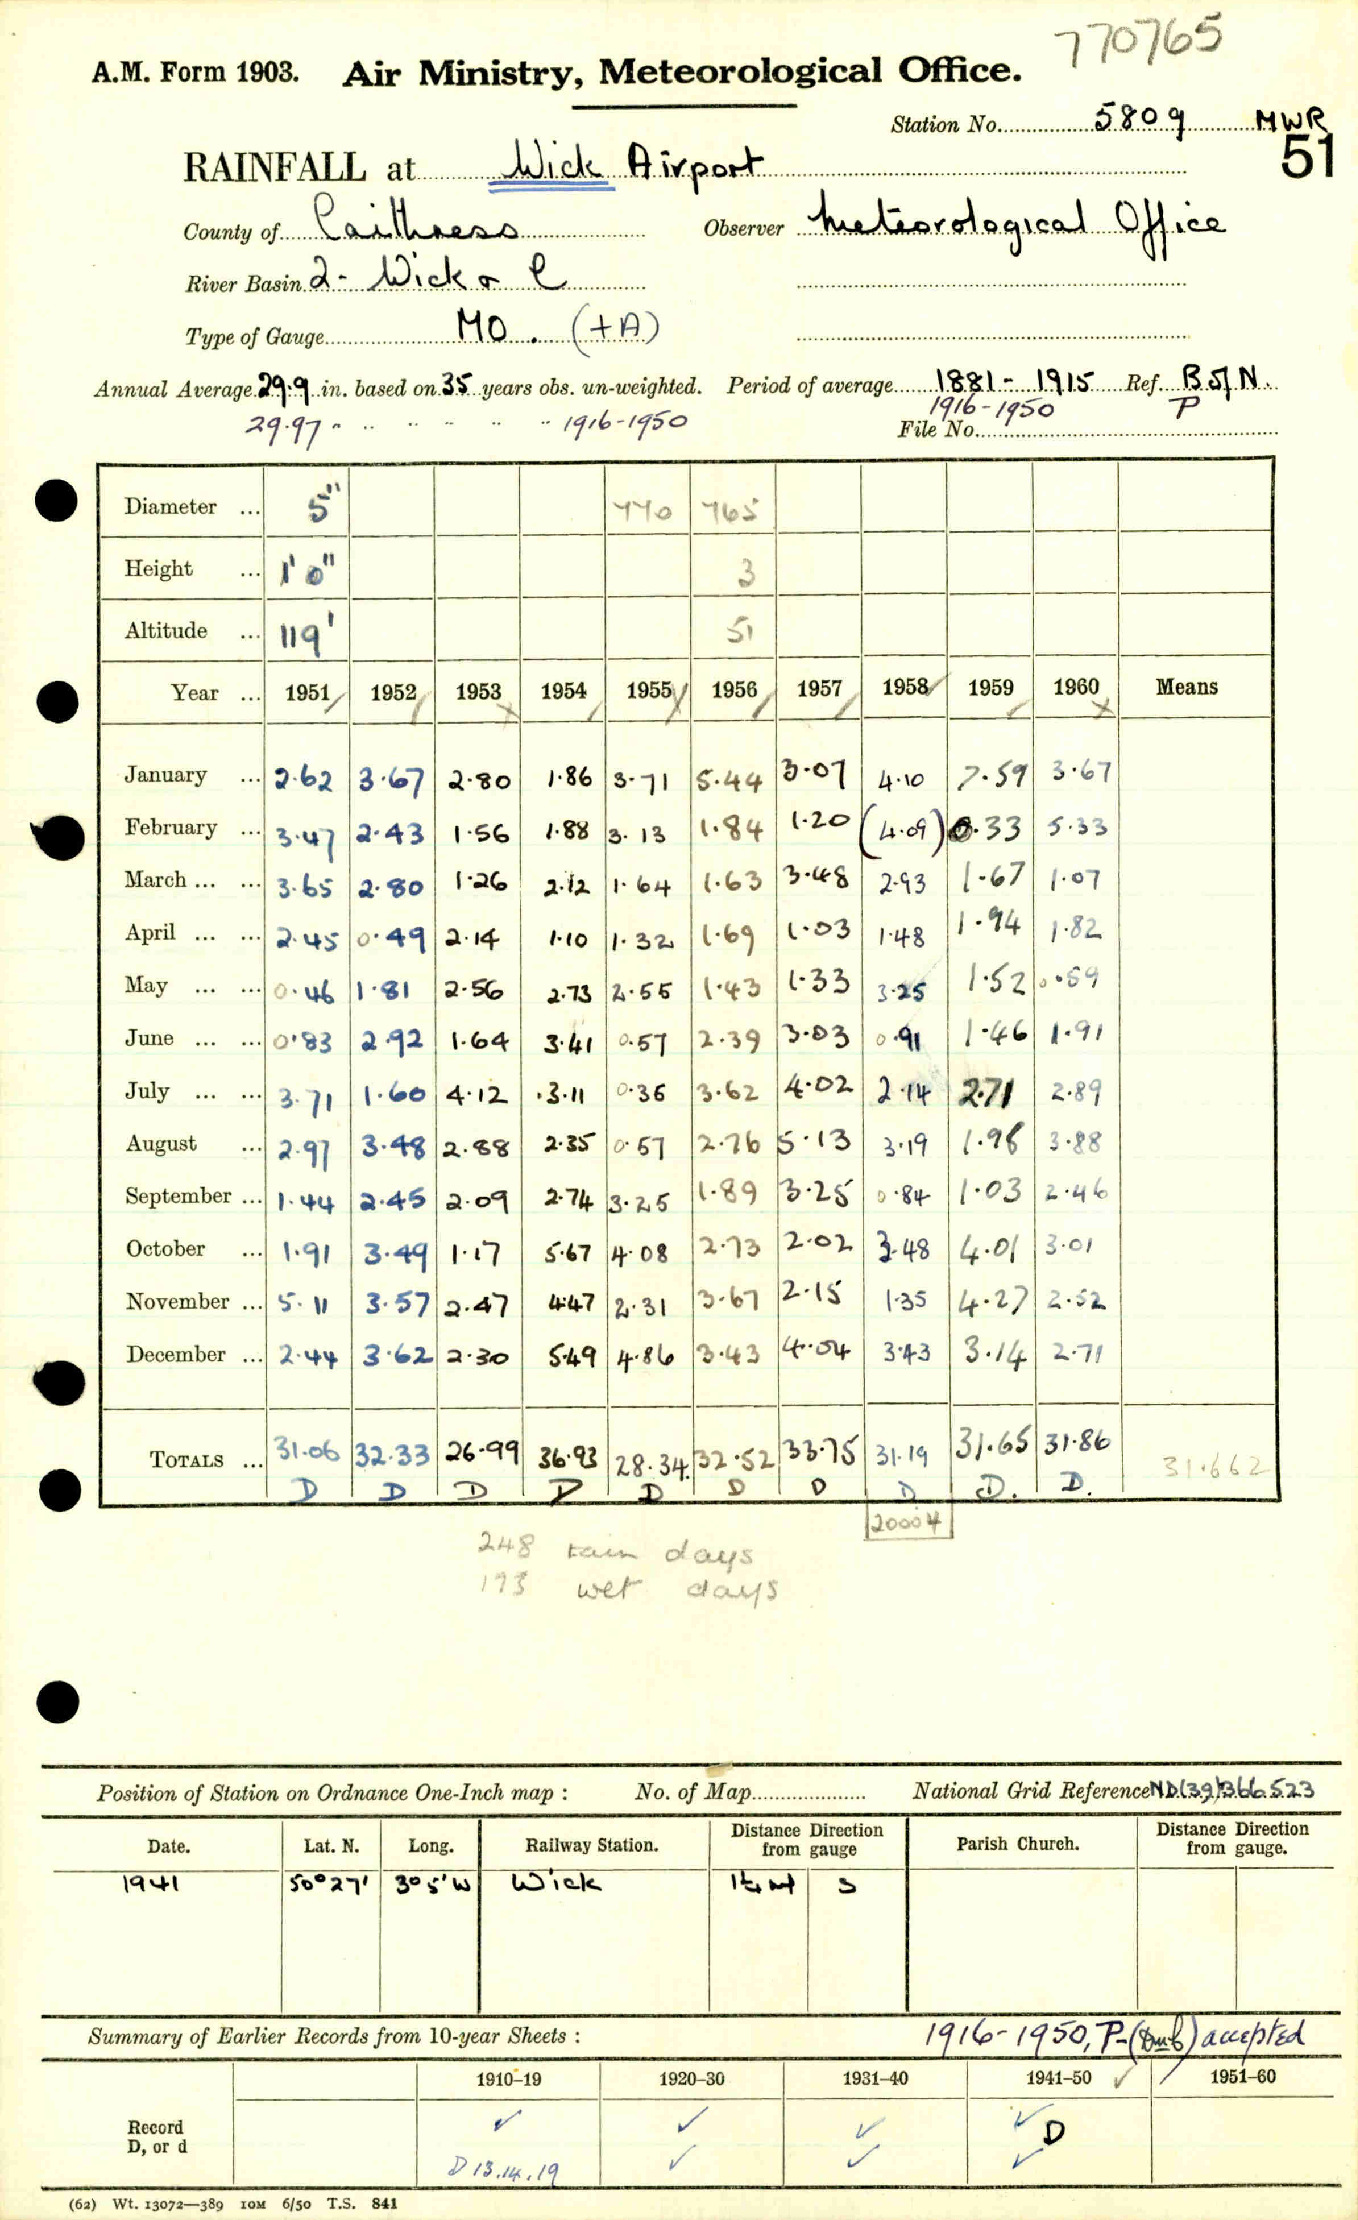 770765
A.M. Form 1903. Air Ministry, Meteorological Office.
Station No. 5809 MWR
51
RAINFALL at Wick Airport
County of Caithness Observer Meteorological Office
River Basin 2 - Wick & C
Type of Gauge MO. (+A)
Annual Average 29.9 in. based on 35 years obs. un-weighted. Period of average 1881-1915 Ref. B of N.
29.97 " " " " " " 1916-1950 1916-1950 P
File No.
Diameter ... 5" 770 765
Height ... 1' 0" 3
Altitude ... 119' 51
Year ... 1951 1952 1953 1954 1955 1956 1957 1958 1959 1960 Means
January ... 2.62 3.67 2.80 1.86 3.71 5.44 3.07 4.10 7.59 3.67
February ... 3.47 2.43 1.56 1.88 3.13 1.84 1.20 (4.09) 0.33 5.33
March ... ... 3.65 2.80 1.26 2.12 1.64 1.63 3.48 2.93 1.67 1.07
April ... ... 2.45 0.49 2.14 1.10 1.32 1.69 1.03 1.48 1.94 1.82
May ... ... 0.46 1.81 2.56 2.73 2.55 1.43 1.33 3.25 1.52 0.59
June ... ... 0.83 2.92 1.64 3.41 0.57 2.39 3.03 0.91 1.46 1.91
July ... ... 3.71 1.60 4.12 3.11 0.36 3.62 4.02 2.14 2.71 2.89
August ... 2.97 3.48 2.88 2.35 0.57 2.76 5.13 3.19 1.98 3.88
September ... 1.44 2.45 2.09 2.74 3.25 1.89 3.25 0.84 1.03 2.46
October ... 1.91 3.49 1.17 5.67 4.08 2.73 2.02 3.48 4.01 3.01
November ... 5.11 3.57 2.47 4.47 2.31 3.67 2.15 1.35 4.27 2.52
December ... 2.44 3.62 2.30 5.49 4.86 3.43 4.04 3.43 3.14 2.71
TOTALS ... 31.06 32.33 26.99 36.93 28.34 32.52 33.75 31.19 31.65 31.86 31.662
D D D D D D D D D. D.
20004
248 rain days
193 wet days
Position of Station on Ordnance One-Inch map : No. of Map National Grid Reference ND(39)366.523
Date. Lat. N. Long. Railway Station. Distance from Direction gauge Parish Church. Distance from Direction gauge.
1941 50°27' 3°5'W Wick 1¼ M S
Summary of Earlier Records from 10-year Sheets : 1916-1950, P-(Dmb) accepted
1910–19 1920–30 1931–40 1941–50 ✓ 1951–60
Record D, or d ✓ ✓ ✓ ✓ D
D 13.14.19 ✓ ✓ ✓
(62) Wt. 13072—389 10M 6/50 T.S. 841